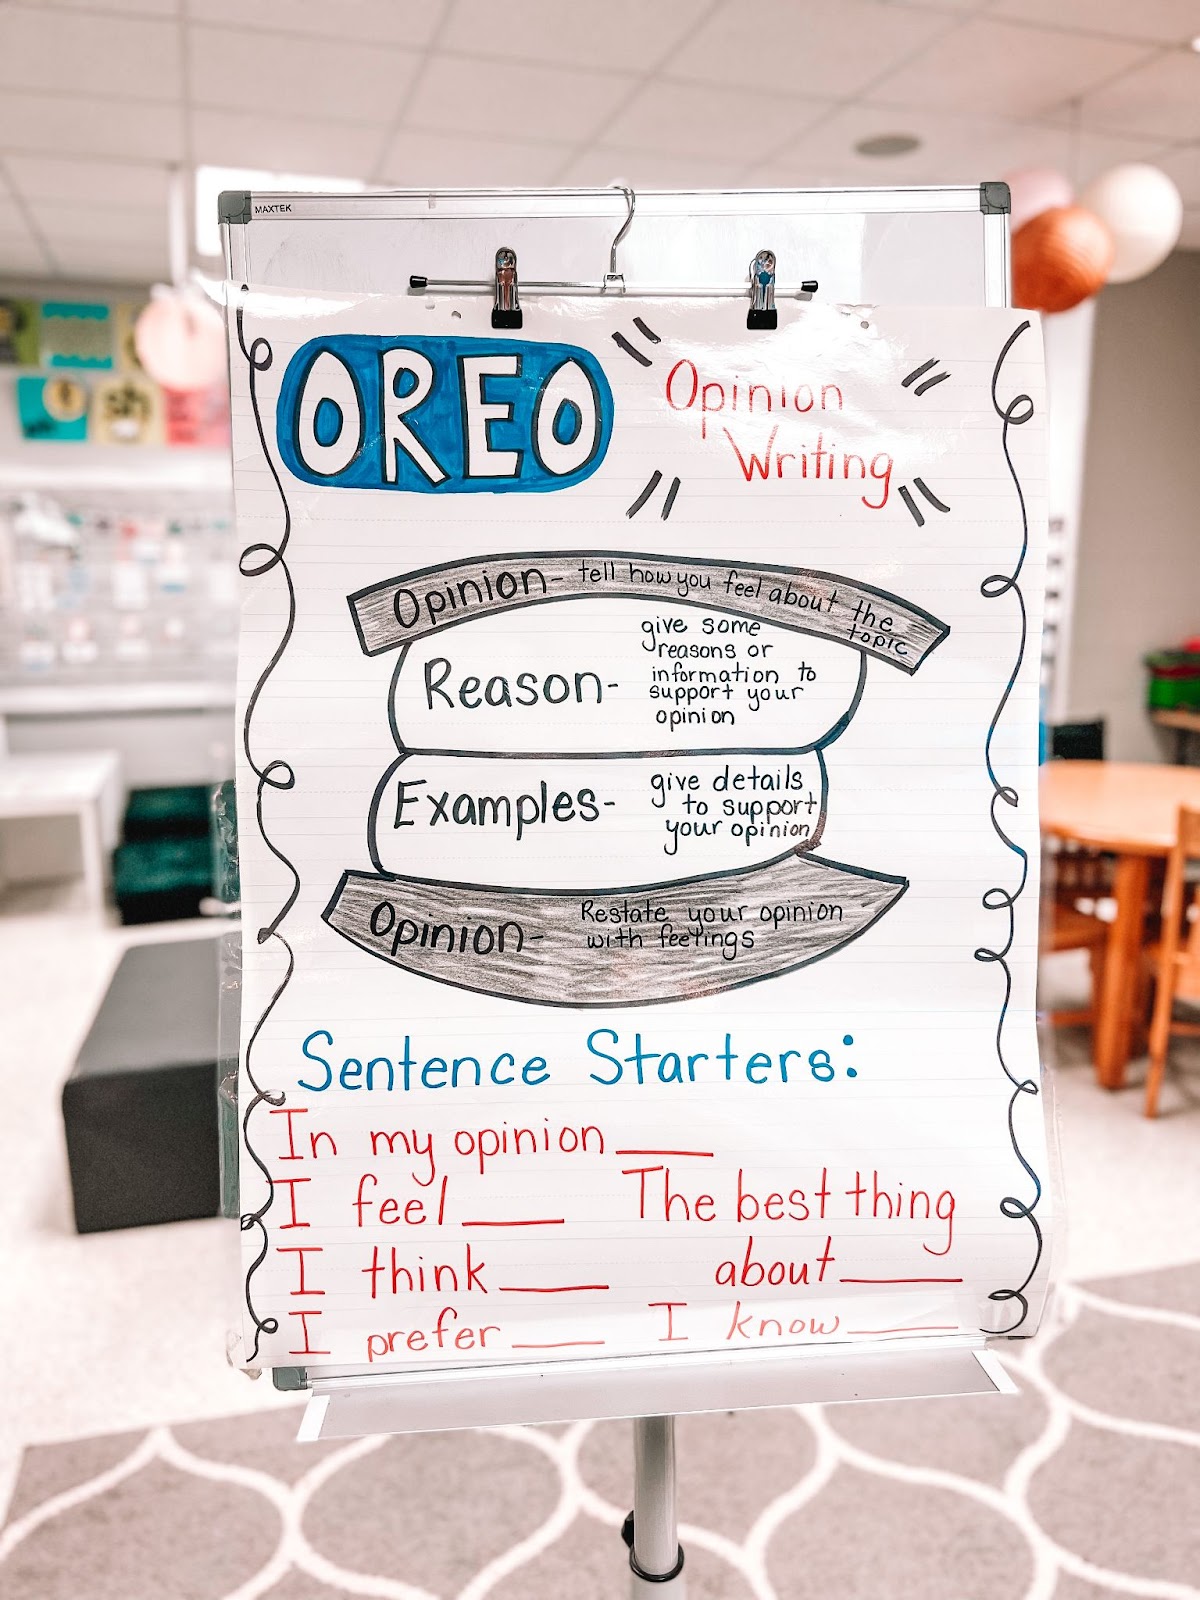 MAXTEK
OREO
Opinion
Writing
Opinion- tell how you feel about the
topic
Reason-
give some
reasons or
information to
support your
opinion
Examples-
give details
to support
your opinion
Opinion-
Restate your opinion
with feelings
Sentence Starters:
In my opinion ____
I feel ____
The best thing
about ____
I think ____
I prefer ____
I know ____